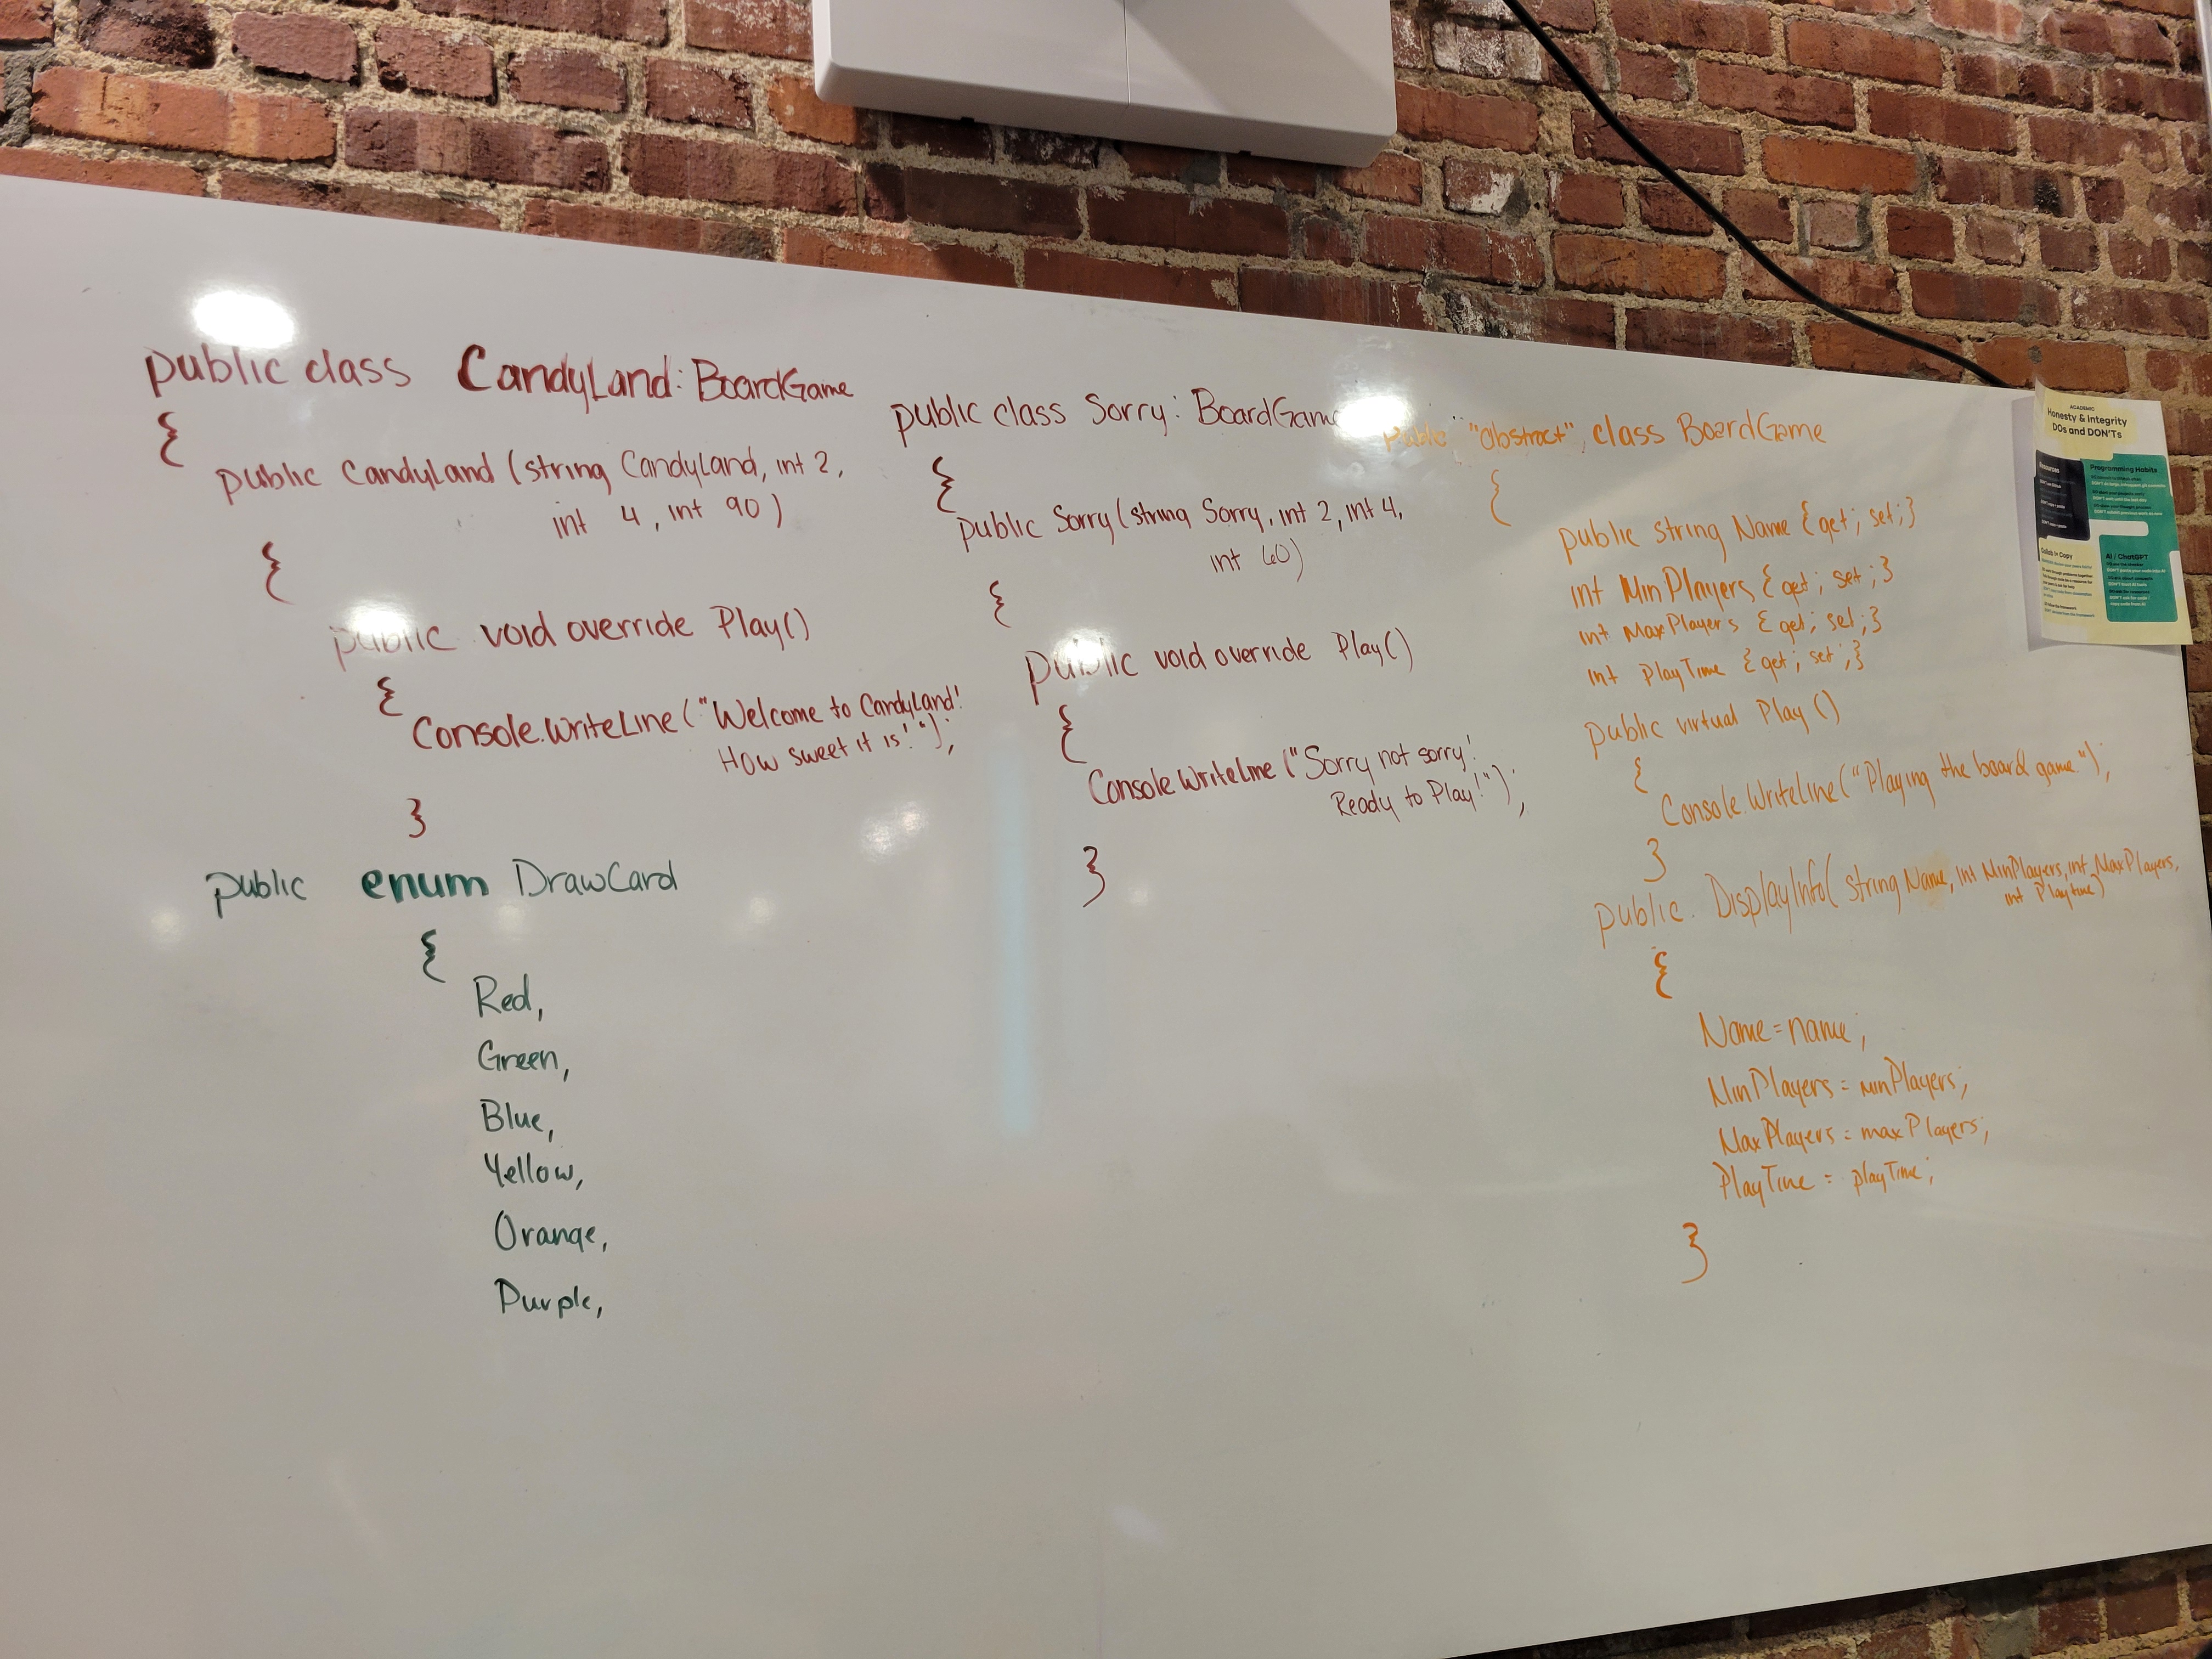 public class CandyLand: BoardGame
{
public CandyLand (string CandyLand, int 2,
int 4, int 90)
{
public void override Play()
{
Console.WriteLine("Welcome to CandyLand!
How sweet it is!");
}
public enum DrawCard
{
Red,
Green,
Blue,
Yellow,
Orange,
Purple,
public class Sorry: BoardGame
{
public Sorry (string Sorry, int 2, int 4,
int 60)
{
public void override Play()
{
Console.WriteLine ("Sorry not sorry!
Ready to Play!");
}
public "abstract" class BoardGame
{
public string Name {get; set;}
int MinPlayers {get; set;}
int MaxPlayers {get; set;}
int PlayTime {get; set;}
public virtual Play()
{
Console.WriteLine("Playing the board game.");
}
public DisplayInfo(string Name, int MinPlayers, int MaxPlayers,
int Playtime)
{
Name = name;
MinPlayers = minPlayers;
MaxPlayers = maxPlayers;
PlayTime = playTime;
}
ACADEMIC
Honesty & Integrity
DOs and DON'Ts
Resources
Programming Habits
AI / ChatGPT